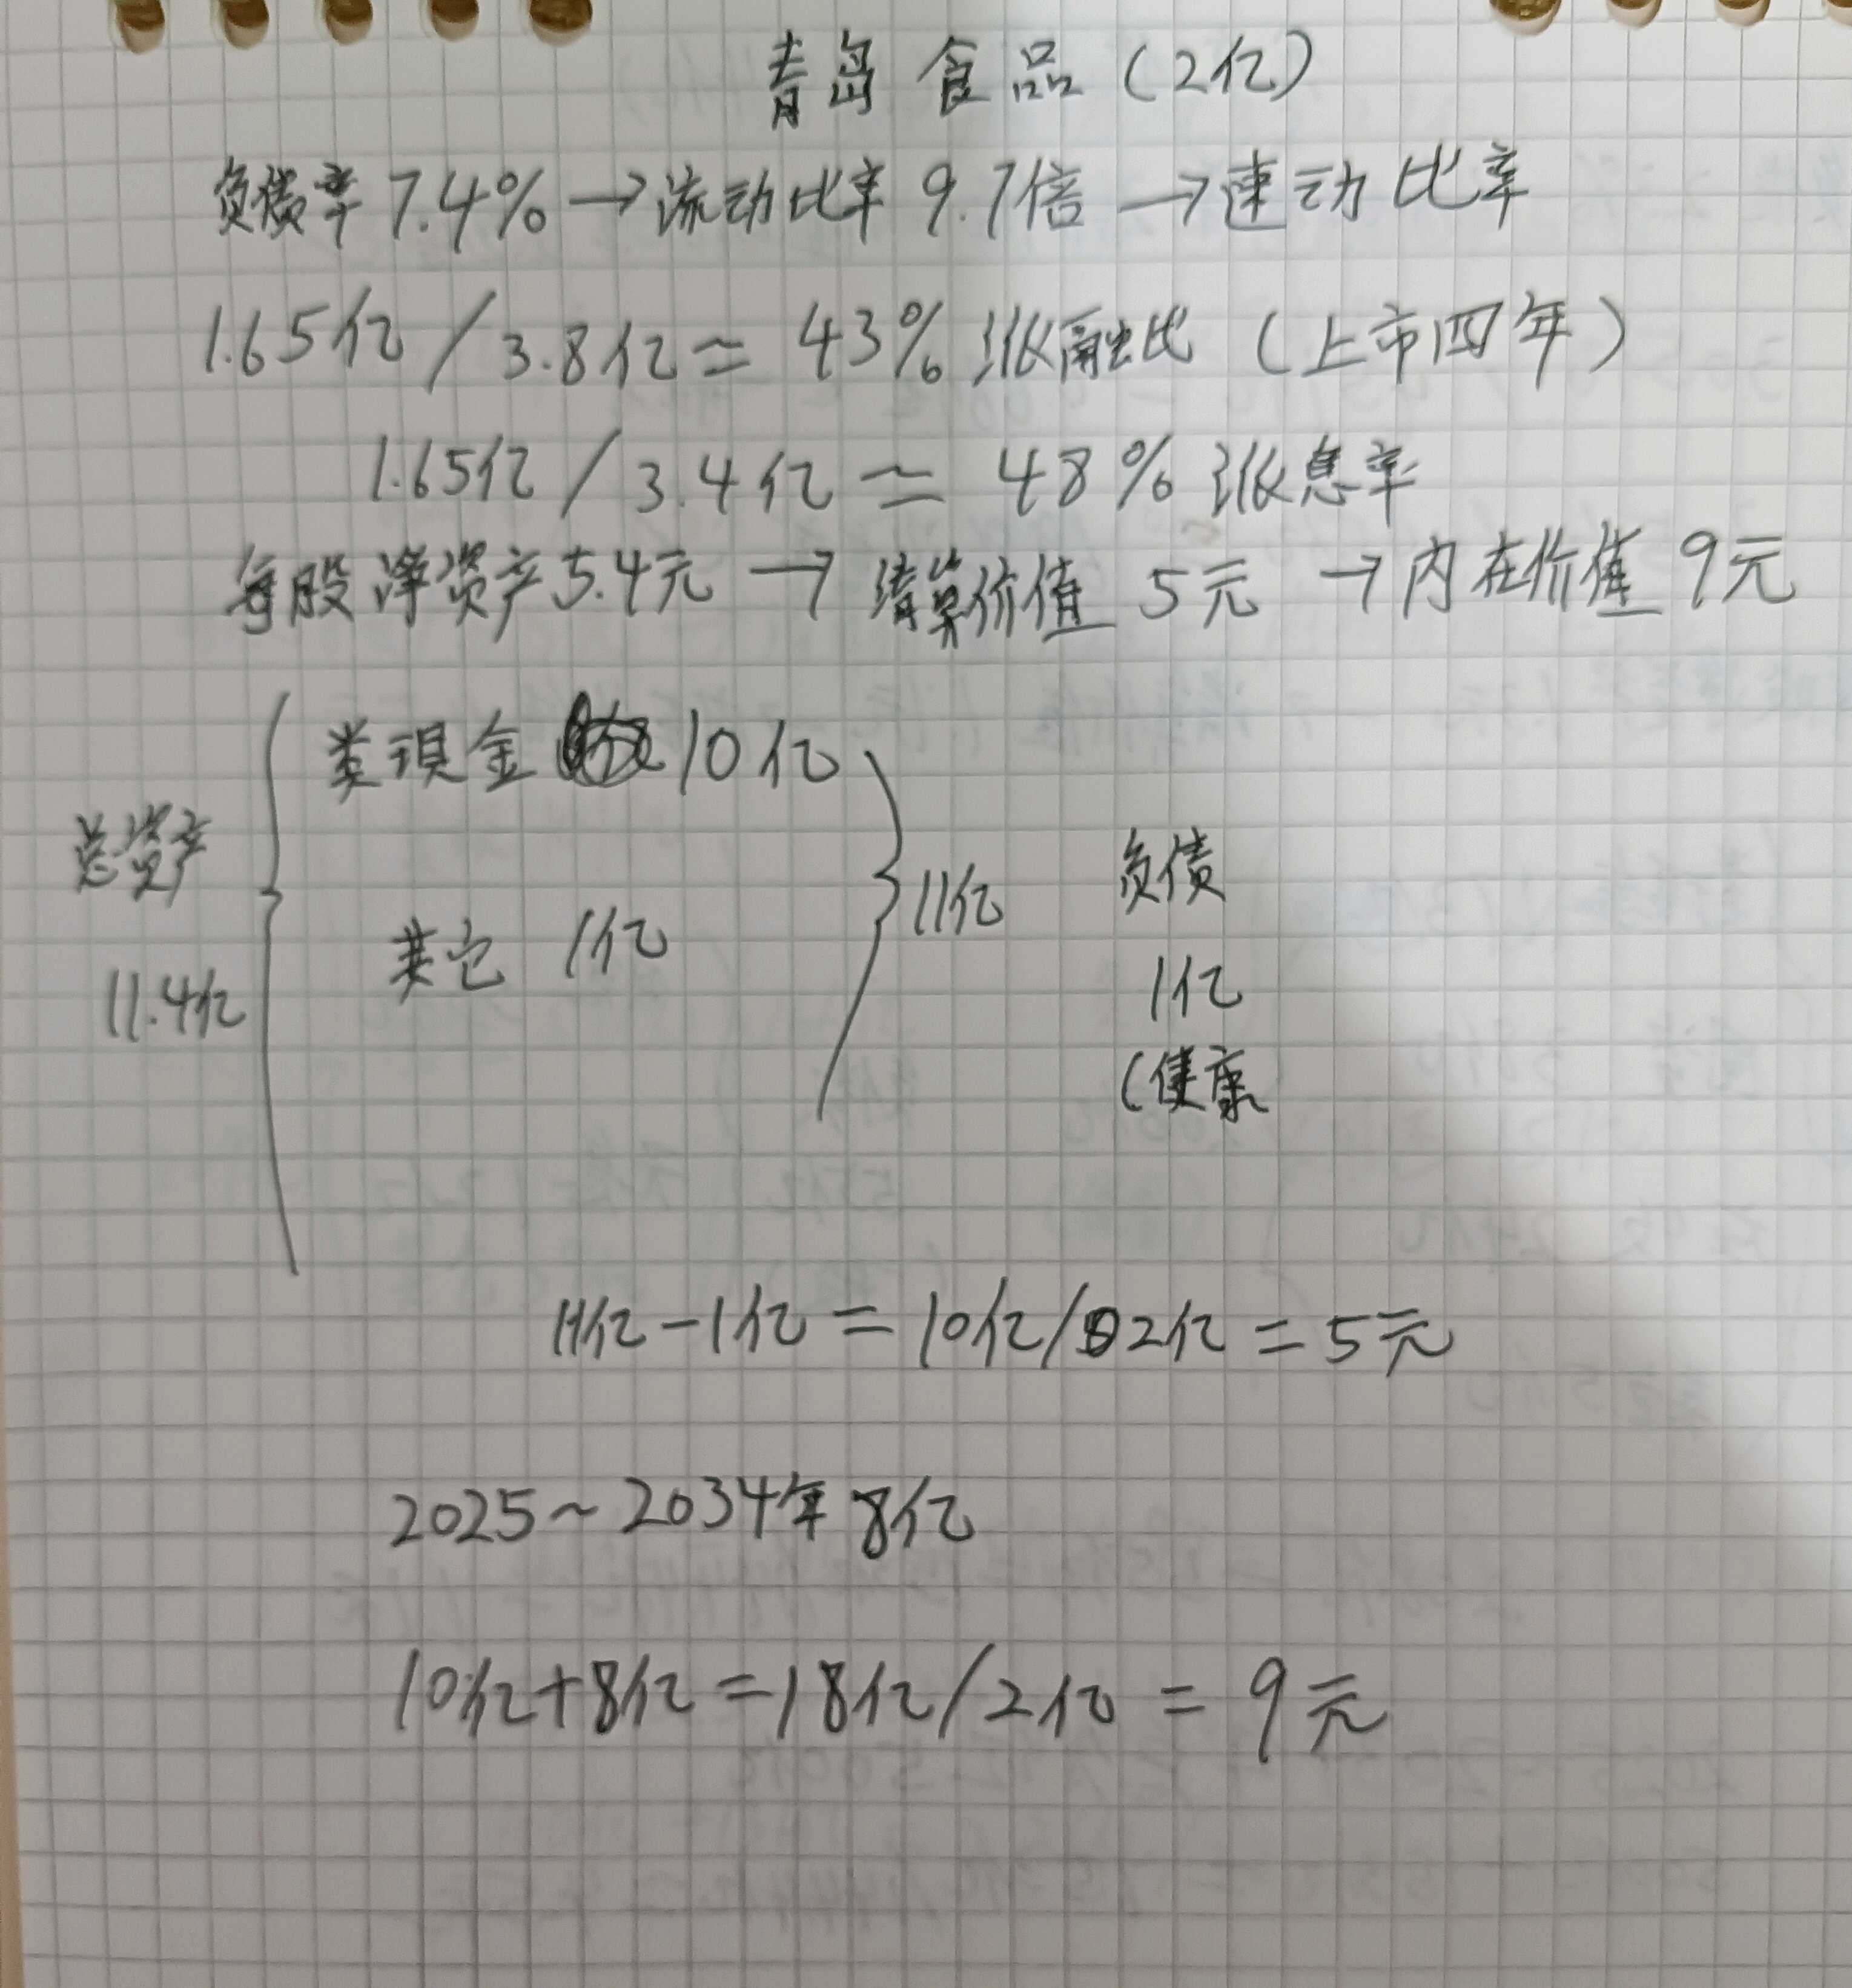 青岛食品（2亿）
负债率7.4%→流动比率9.7倍→速动比率
1.65亿/3.8亿≈43%派融比（上市四年）
1.65亿/3.4亿≈48%派息率
每股净资产5.4元→清算价值5元→内在价值9元
类现金10亿
总资产
11亿
负债
其它 1亿
11.4亿
1亿
(健康
11亿-1亿=10亿/2亿=5元
2025~2034年8亿
10亿+8亿=18亿/2亿=9元